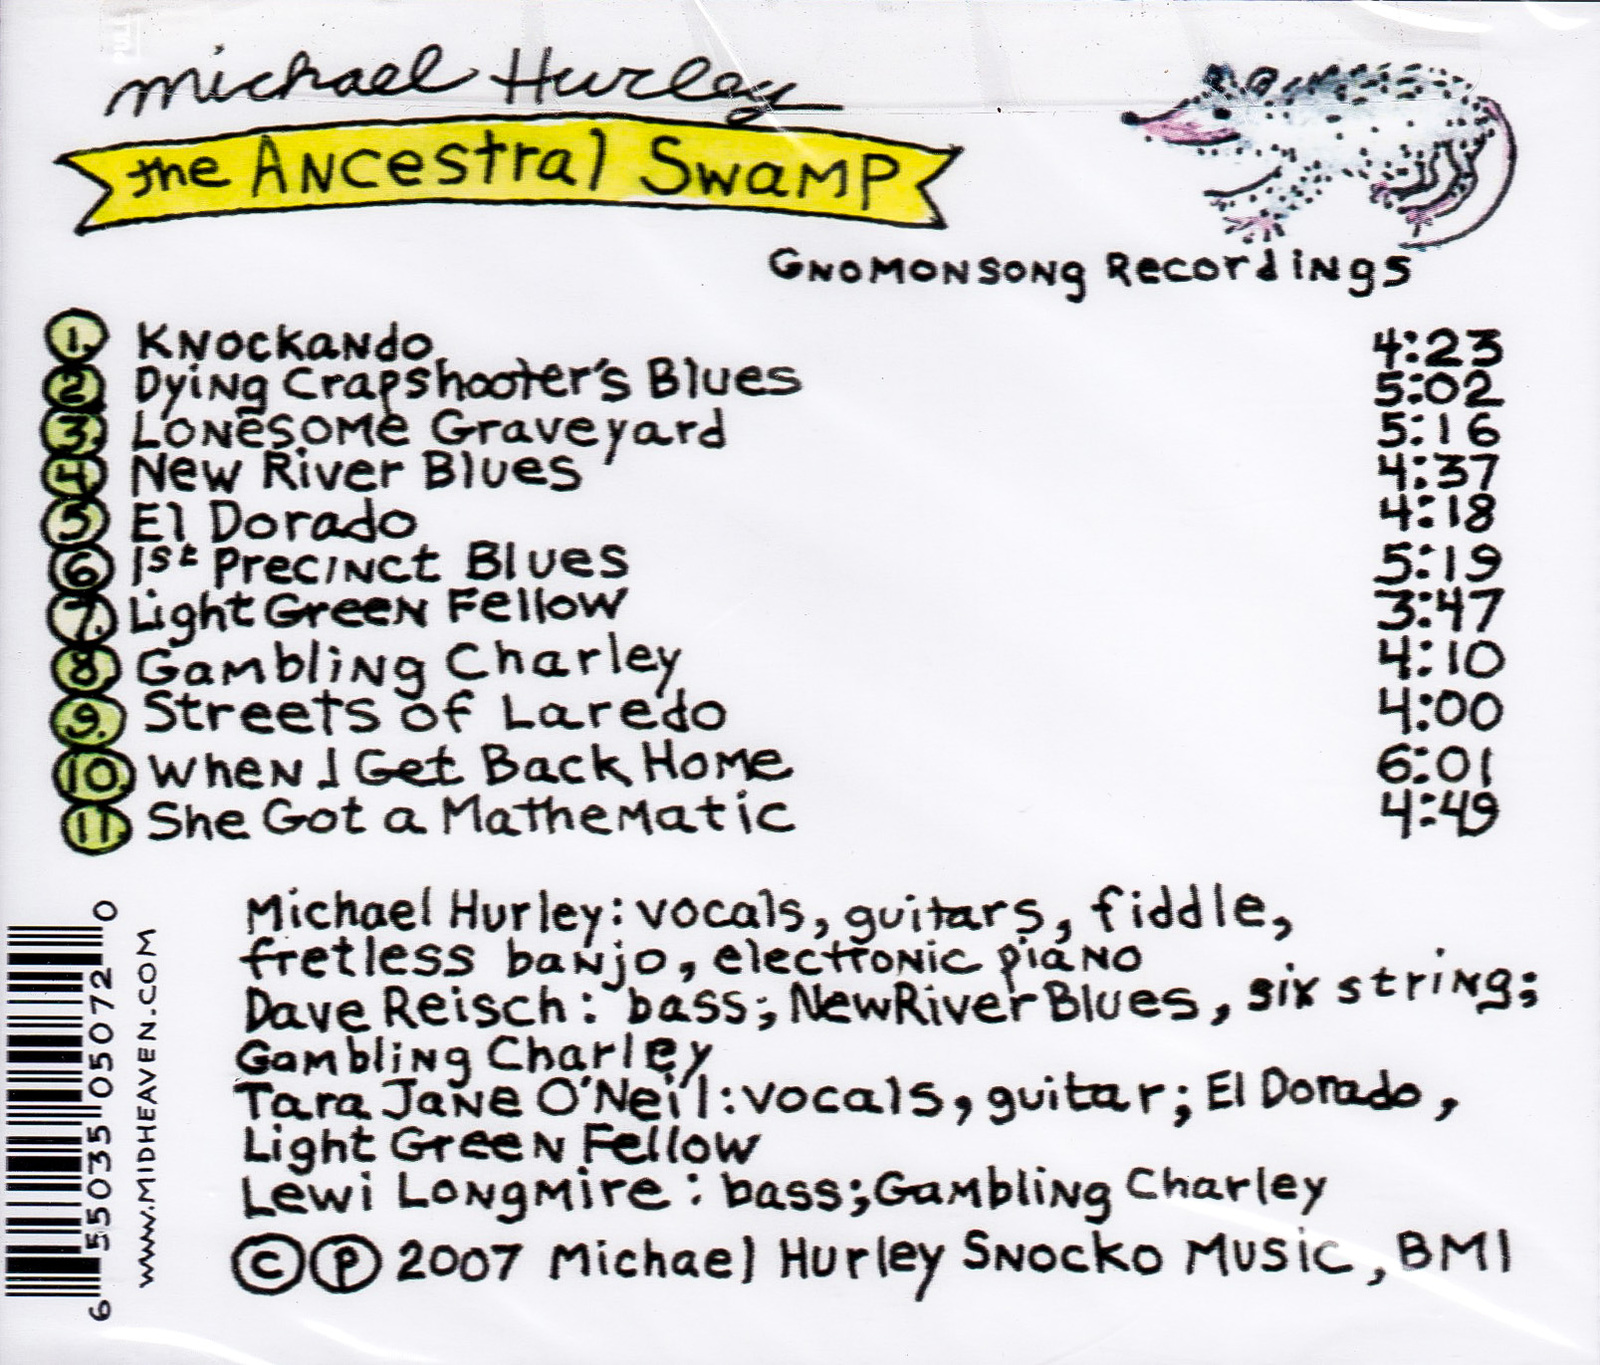 Michael Hurley
the Ancestral Swamp
Gnomonsong Recordings
1. Knockando 4:23
2. Dying Crapshooter's Blues 5:02
3. Lonesome Graveyard 5:16
4. New River Blues 4:37
5. El Dorado 4:18
6 1st Precinct Blues 5:19
7. Light Green Fellow 3:47
8. Gambling Charley 4:10
9. Streets of Laredo 4:00
10. When I Get Back Home 6:01
11. She Got a Mathematic 4:49
Michael Hurley: vocals, guitars, fiddle,
fretless banjo, electronic piano
Dave Reisch: bass; New River Blues, six string;
Gambling Charley
Tara Jane O'Neil: vocals, guitar; El Dorado,
Light Green Fellow
Lewi Longmire: bass; Gambling Charley
© ℗ 2007 Michael Hurley Snocko Music, BMI
6 55035 05072 0
WWW.MIDHEAVEN.COM